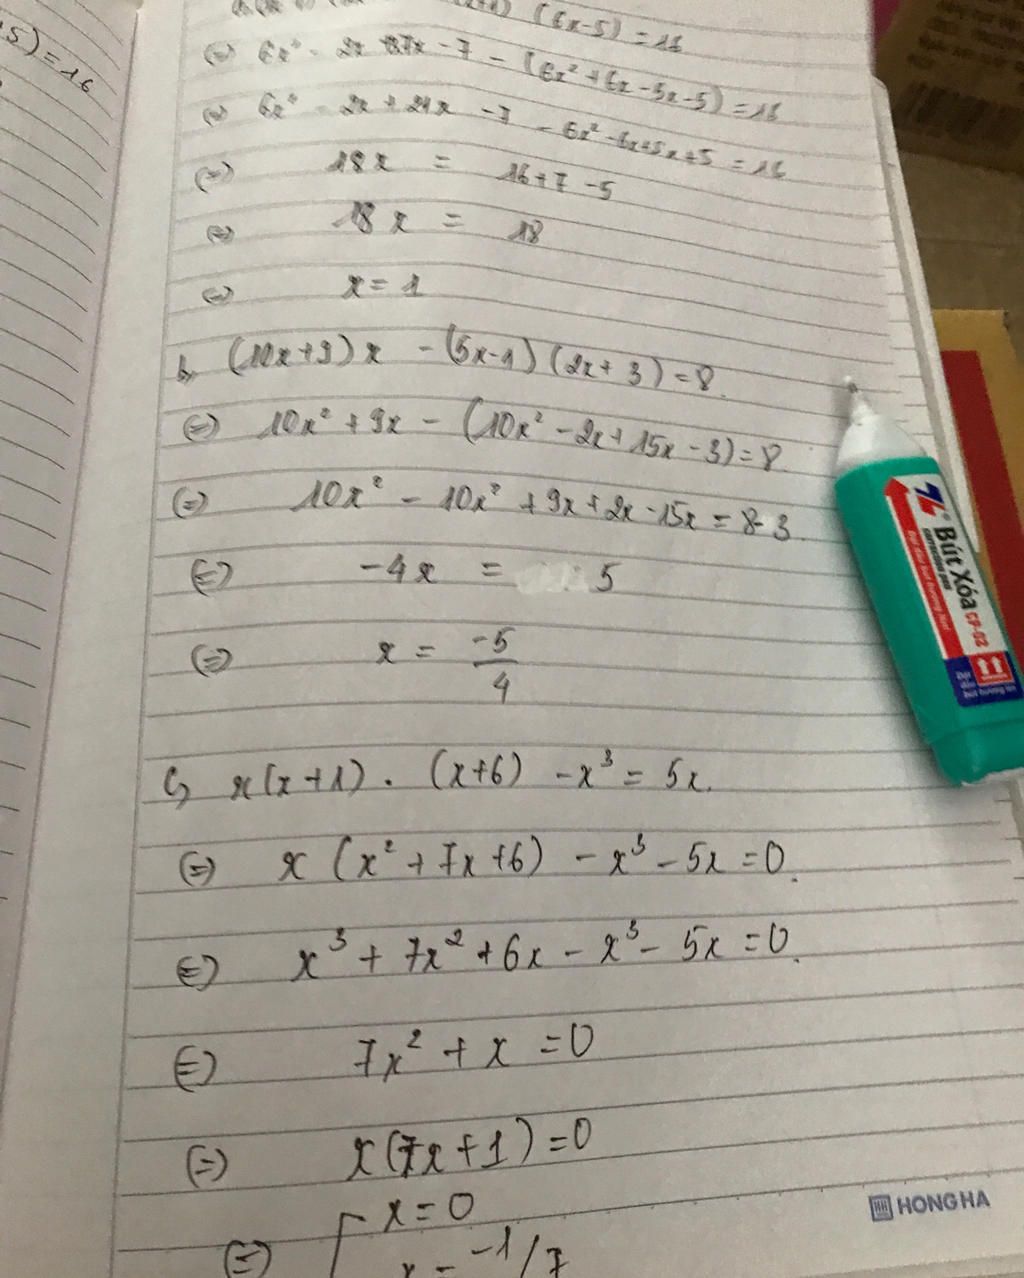 5) = 16
(6x-5) = 16
(=) 6x² - 2x + 27x - 7 - (6x² + 6x - 5x - 5) = 16
(=) 6x² - 2x + 21x - 7 - 6x² - 6x + 5x + 5 = 16
(=) 18x = 16 + 7 - 5
(=) 18x = 18
(=) x = 1
b, (10x+9)x - (5x-1)(2x+3) = 8.
(=) 10x² + 9x - (10x² - 2x + 15x - 3) = 8.
(=) 10x² - 10x² + 9x + 2x - 15x = 8-3.
(=) -4x = 5
(=) x = -5/4
c, x(x+1) . (x+6) - x³ = 5x.
(=) x (x² + 7x + 6) - x³ - 5x = 0.
(=) x³ + 7x² + 6x - x³ - 5x = 0.
(=) 7x² + x = 0
(=) x(7x+1) = 0
(=) [ x = 0
x = -1/7
Bút Xóa CP-02
correction pen
HONG HA